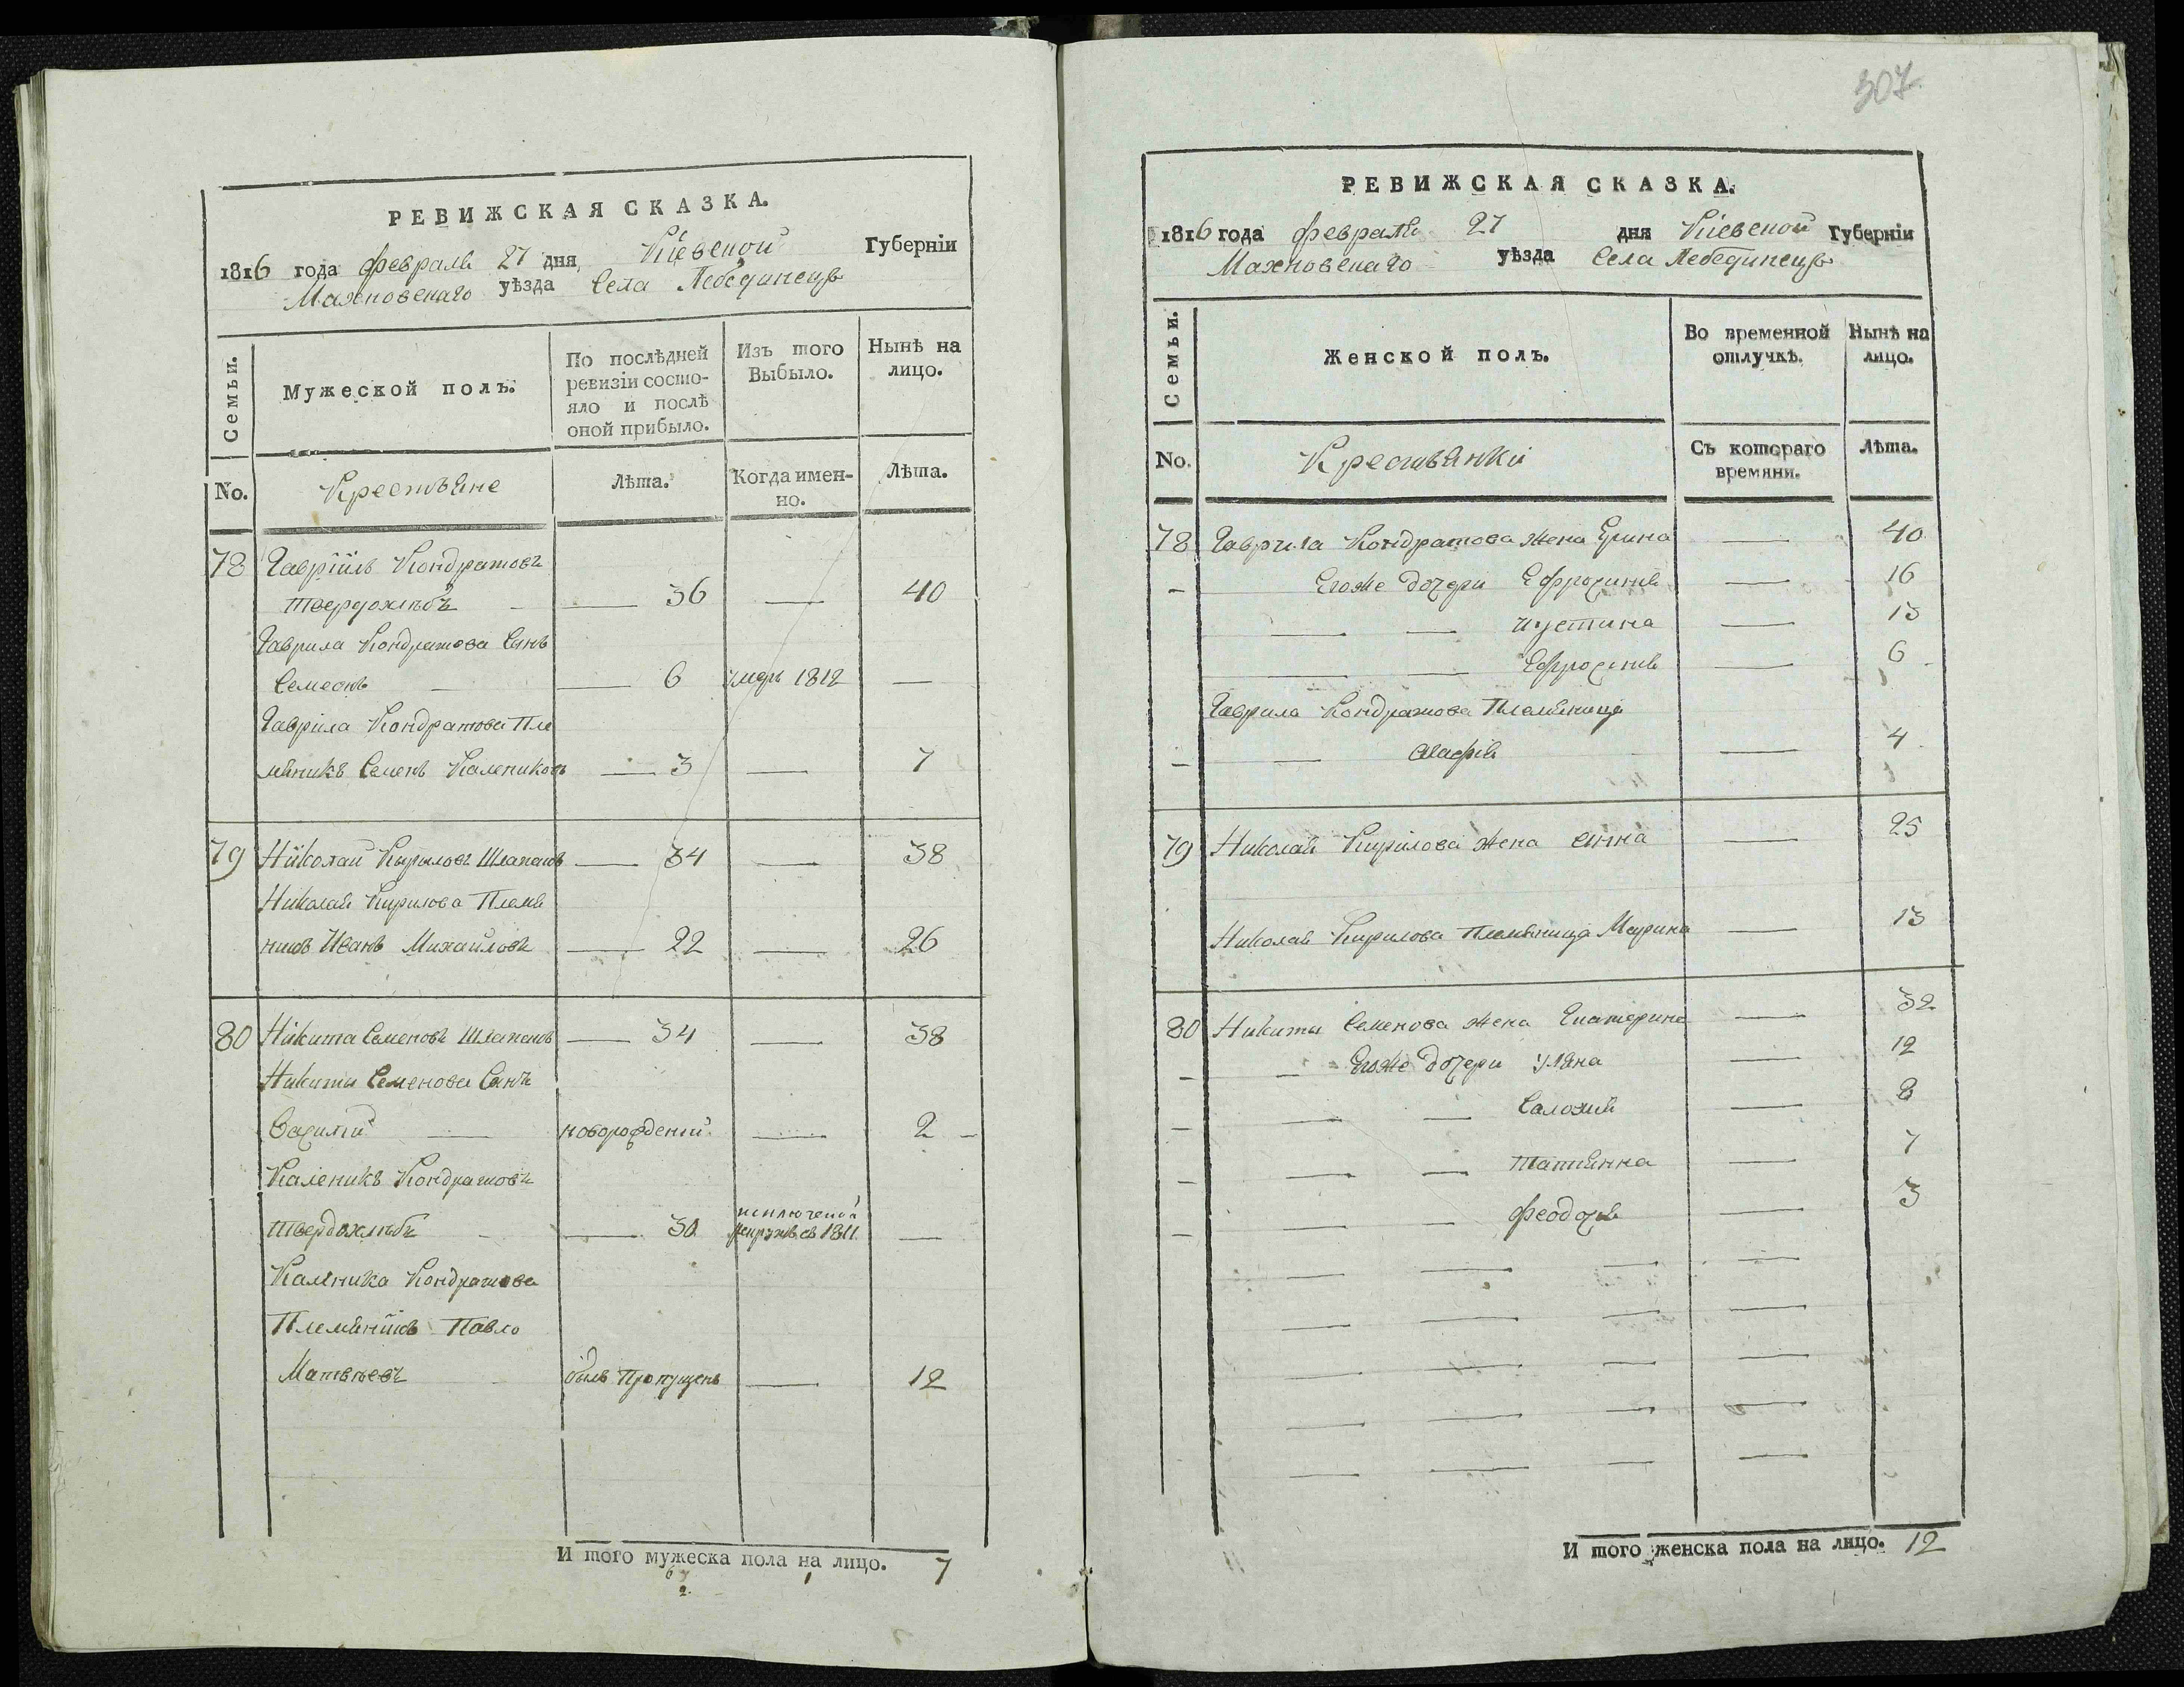 РЕВИЖСКАЯ СКАЗКА.
1816 года февраля 27 дня Кіевской Губерніи
Махновскаго уѣзда Села Лебединецъ
Семьи.
Мужеской полъ.
По послѣдней ревизіи состо-
яло и послѣ
оной прибыло.
Изъ того
Выбыло.
Нынѣ на
лицо.
No.
Крестьяне
Лѣта.
Когда имен-
но.
Лѣта.
78 Гавріилъ Кондратовъ
Твердохлѣбъ — 36 — 40
Гаврила Кондратова Сынъ
Семеонъ — 6 умеръ 1812 —
Гаврила Кондратова Пле
мяникъ Семенъ Калениковъ — 3 — 7
79 Николай Кириловъ Шлапакъ — 34 — 38
Николая Кирилова Племя
никъ Иванъ Михайловъ — 22 — 26
80 Никита Семеновъ Шлапакъ — 34 — 38
Никиты Семенова Сынъ
Василий — новорожденій — 2
Каленикъ Кондратовъ
Твердохлѣбъ — 30 1811 —
Каленика Кондратова
Племянникъ Павло
Матвѣевъ былъ Пропущенъ — 12
И того мужеска пола на лицо. 7
307.
РЕВИЖСКАЯ СКАЗКА.
1816 года февраля 27 дня Кіевской Губерніи
Махновскаго уѣзда Села Лебединецъ
Семьи.
Женской полъ.
Во временной
отлучкѣ.
Нынѣ на
лицо.
No.
Крестьянки
Съ котораго
времяни.
Лѣта.
78 Гаврила Кондратова жена Ерина — 40
— Егоже дочери Ефросиня — 16
— — Иустина — 13
— — Ефросиня — 6
Гаврила Кондратова Племяница
— — — 4
79 Николая Кирилова жена Анна — 25
Николая Кирилова Племяница Марина — 13
80 Никиты Семенова жена Екатерина — 32
— — Егоже дочери Уляна — 12
— — — Саломия — 8
— — — Татиянна — 7
— — — Феодося — 3
И того женска пола на лицо. 12